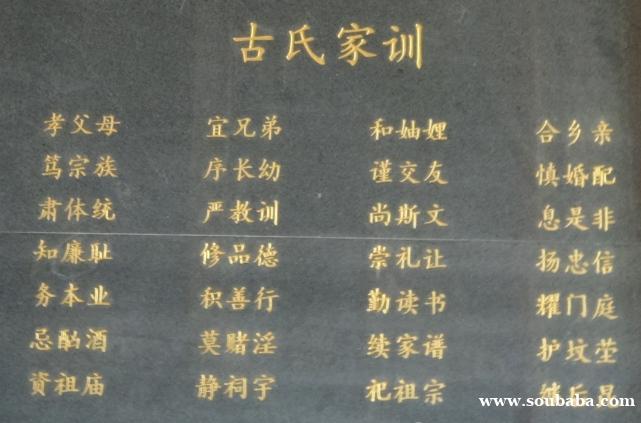 古氏家训
孝父母 宜兄弟 和妯娌 合乡亲
笃宗族 序长幼 谨交友 慎婚配
肃体统 严教训 尚斯文 息是非
知廉耻 修品德 崇礼让 扬忠信
务本业 积善行 勤读书 耀门庭
忌酗酒 莫赌淫 续家谱 护坟茔
資祖庙 静祠宇 祀祖宗
www.soubaba.com